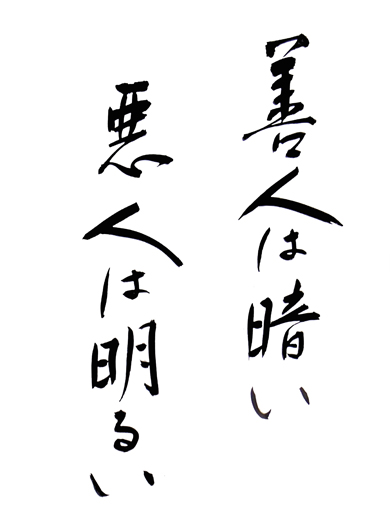 善人は暗い
悪人は明るい